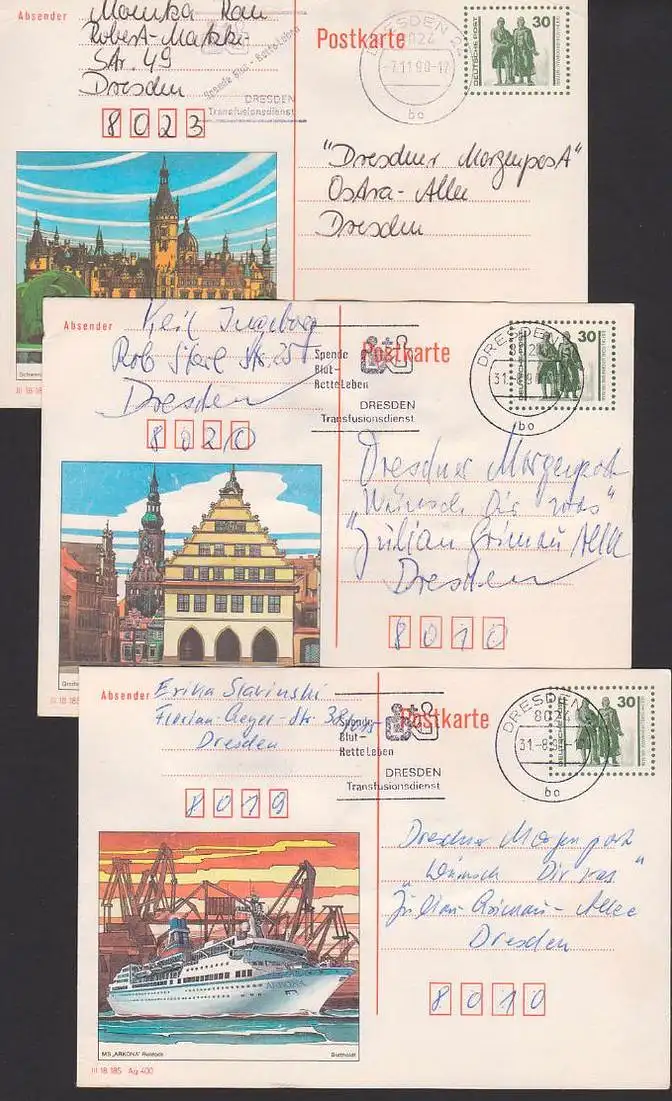 Absender
Monika Rau
Robert-Matzke
Str. 49
Dresden
8023
Spende Blut - Rette Leben
DRESDEN
Transfusionsdienst
Postkarte
DRESDEN
8024
-7.11.90-12
bo
DEUTSCHE POST
30
"Dresdner Morgenpost"
Ostra-Allee
Dresden
Schwerin
III 18 185
Absender
Keil Ingeborg
Dresden
8020
Spende
Blut-
Rette Leben
DRESDEN
Transfusionsdienst
Postkarte
DRESDEN
bo
30
Dresdner Morgenpost
"Wünsch Dir was"
Julian Grimau Allee
Dresden
8010
III 18 185
Absender
Erika Slavinski
Florian-Geyer-Str. 38
Dresden
8019
Spende
Blut-
Rette Leben
DRESDEN
Transfusionsdienst
Postkarte
DRESDEN
8024
bo
30
Dresdner Morgenpost
"Wünsch Dir was"
Julian-Grimau-Allee
Dresden
8010
ARKONA
MS "ARKONA" Rostock
III 18 185 Ag 400